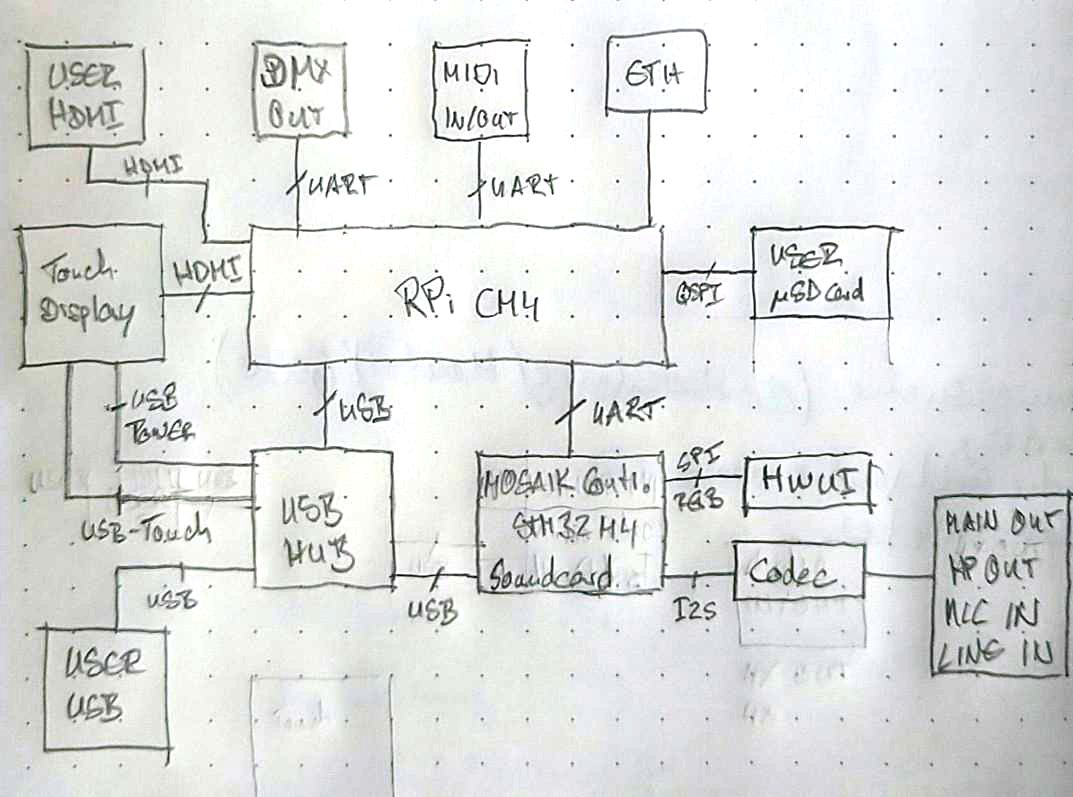 USER
HDMI
DMX
OUT
MIDI
IN/OUT
ETH
HDMI
UART
UART
Touch
Display
HDMI
RPi CM4
QSPI
USER
µSD Card
USB
POWER
USB
UART
USB-Touch
USB
HUB
MOSAIK Contr.
STM32H4
Soundcard
SPI
HWUI
I2S
Codec
MAIN OUT
HP OUT
MIC IN
LINE IN
USB
USB
USER
USB